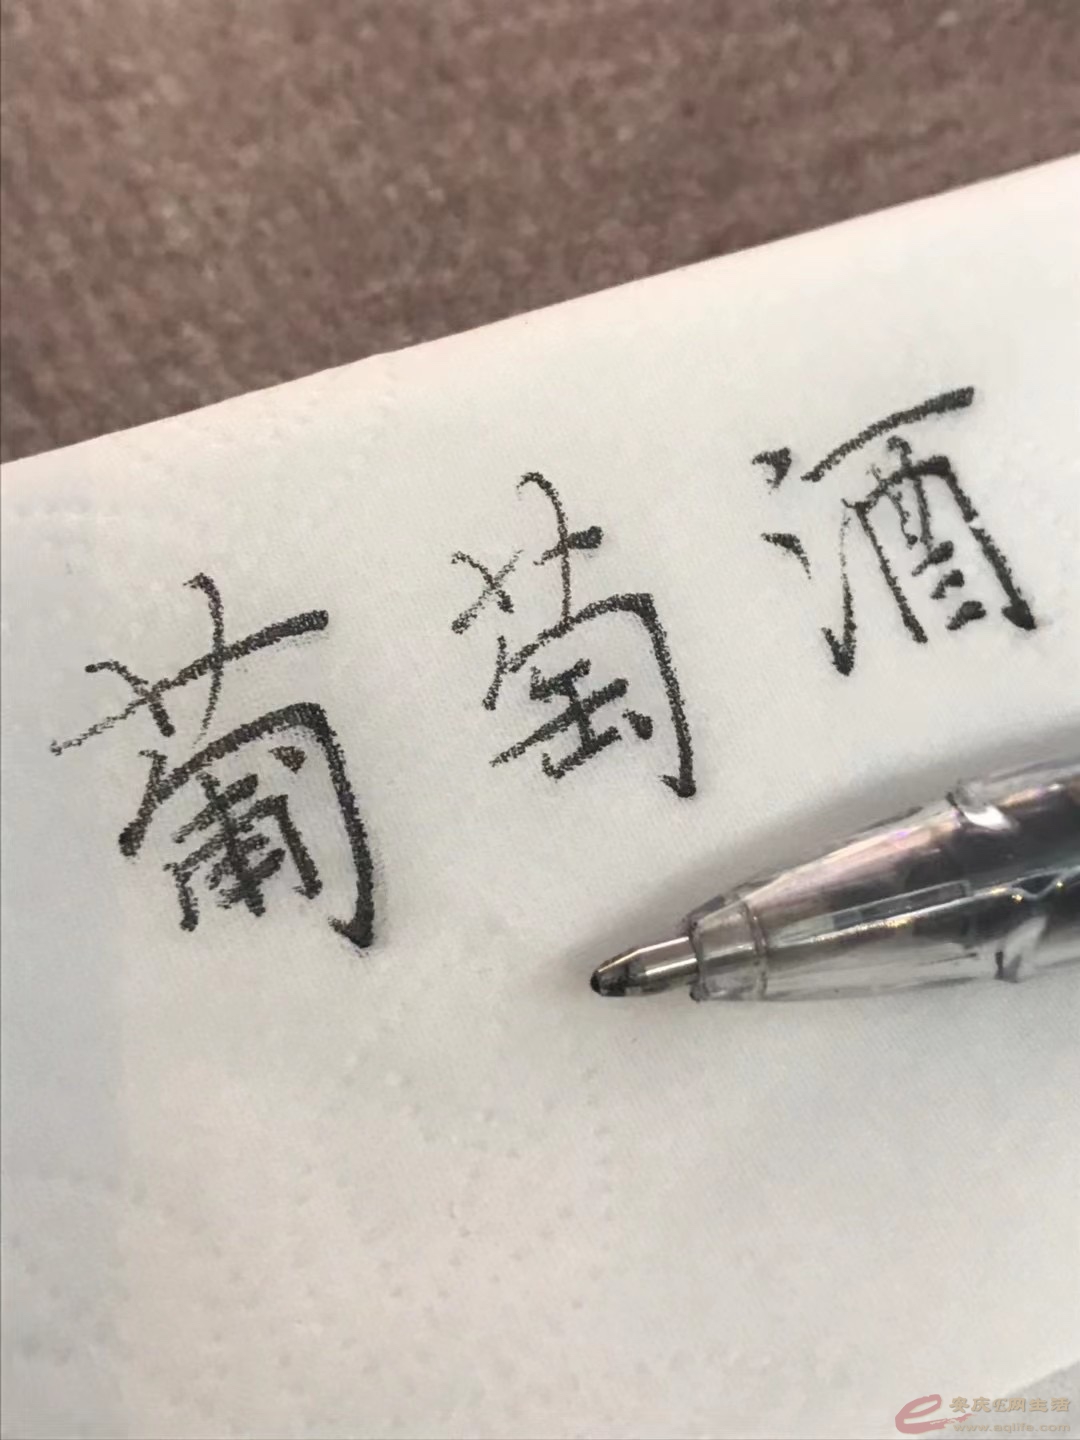 葡萄酒
安庆E网生活
www.eqlife.com